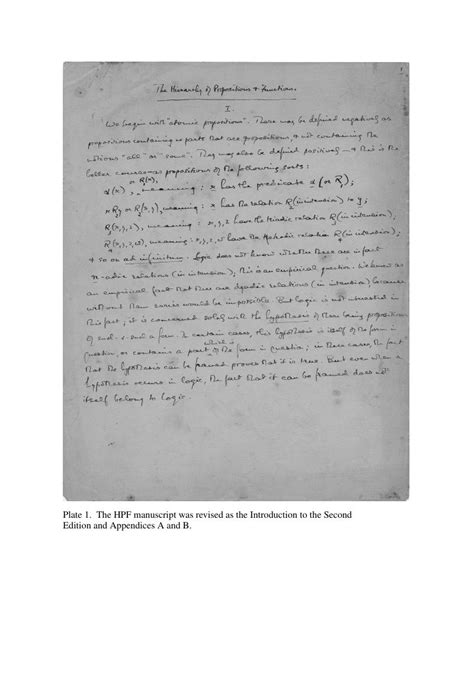 The Hierarchy of Propositions & Functions.
I.
We begin with "atomic propositions". These may be defined negatively as
propositions containing no parts that are propositions, & not containing the
notions "all" or "some". They may also be defined positively — & this is the
better course — as propositions of the following sorts:
α(x) or R₁(x), meaning: x has the predicate α (or R₁);
x R₂ y or R₂(x,y), meaning: x has the relation R₂ (in intension) to y;
R₃(x,y,z), meaning: x,y,z have the triadic relation R₃ (in intension);
R₄(x,y,z,w), meaning: x,y,z,w have the tetradic relation R₄ (in intension);
& so on ad infinitum. Logic does not know whether there are in fact
n-adic relations (in intension); this is an empirical question. We know as
an empirical fact that there are dyadic relations (in intension) because
without them series would be impossible. But logic is not interested in
this fact; it is concerned solely with the hypothesis of there being propositions
of such-&-such a form. In certain cases, this hypothesis is itself of the form in
question, or contains a part which is of the form in question; in these cases, the fact
that the hypothesis can be framed proves that it is true. But even when a
hypothesis occurs in logic, the fact that it can be framed does not
itself belong to logic.
Plate 1. The HPF manuscript was revised as the Introduction to the Second
Edition and Appendices A and B.